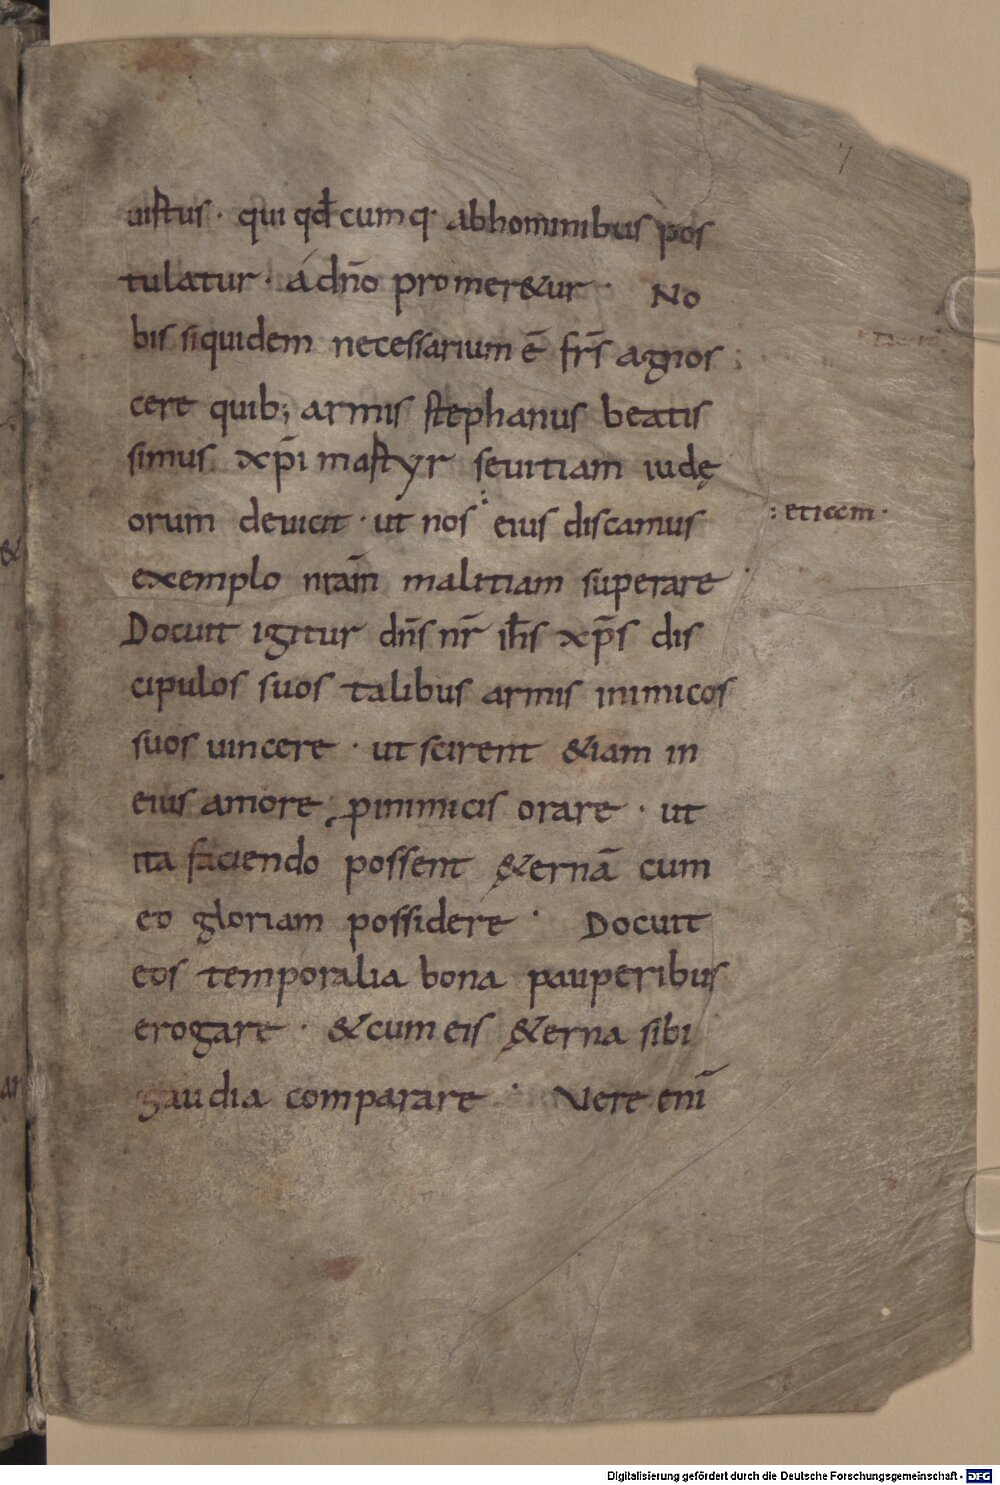 uistus · qui qđcumq· abhominibus pos
tulatur · á dn̄o promer&ur · No
bis siquidem necessarium ē fr̄s agnos
cere quib; armis stephanus beatis
simus xp̄i martyr seuitiam iudę
orum deuicit · ut nos eius discamus
: etiam ·
exemplo nr̄am malitiam superare
Docuit igitur dn̄s nr̄ ih̄s xp̄s dis
cipulos suos talibus armis inimicos
suos uincere · ut scirent &iam in
eius amore ꝓinimicis orare · ut
ita faciendo possent &ernā cum
eo gloriam possidere · Docuit
eos temporalia bona pauperibus
erogare · &cum eis &erna sibi
gaudia comparare · Vere enī
Digitalisierung gefördert durch die Deutsche Forschungsgemeinschaft - DFG